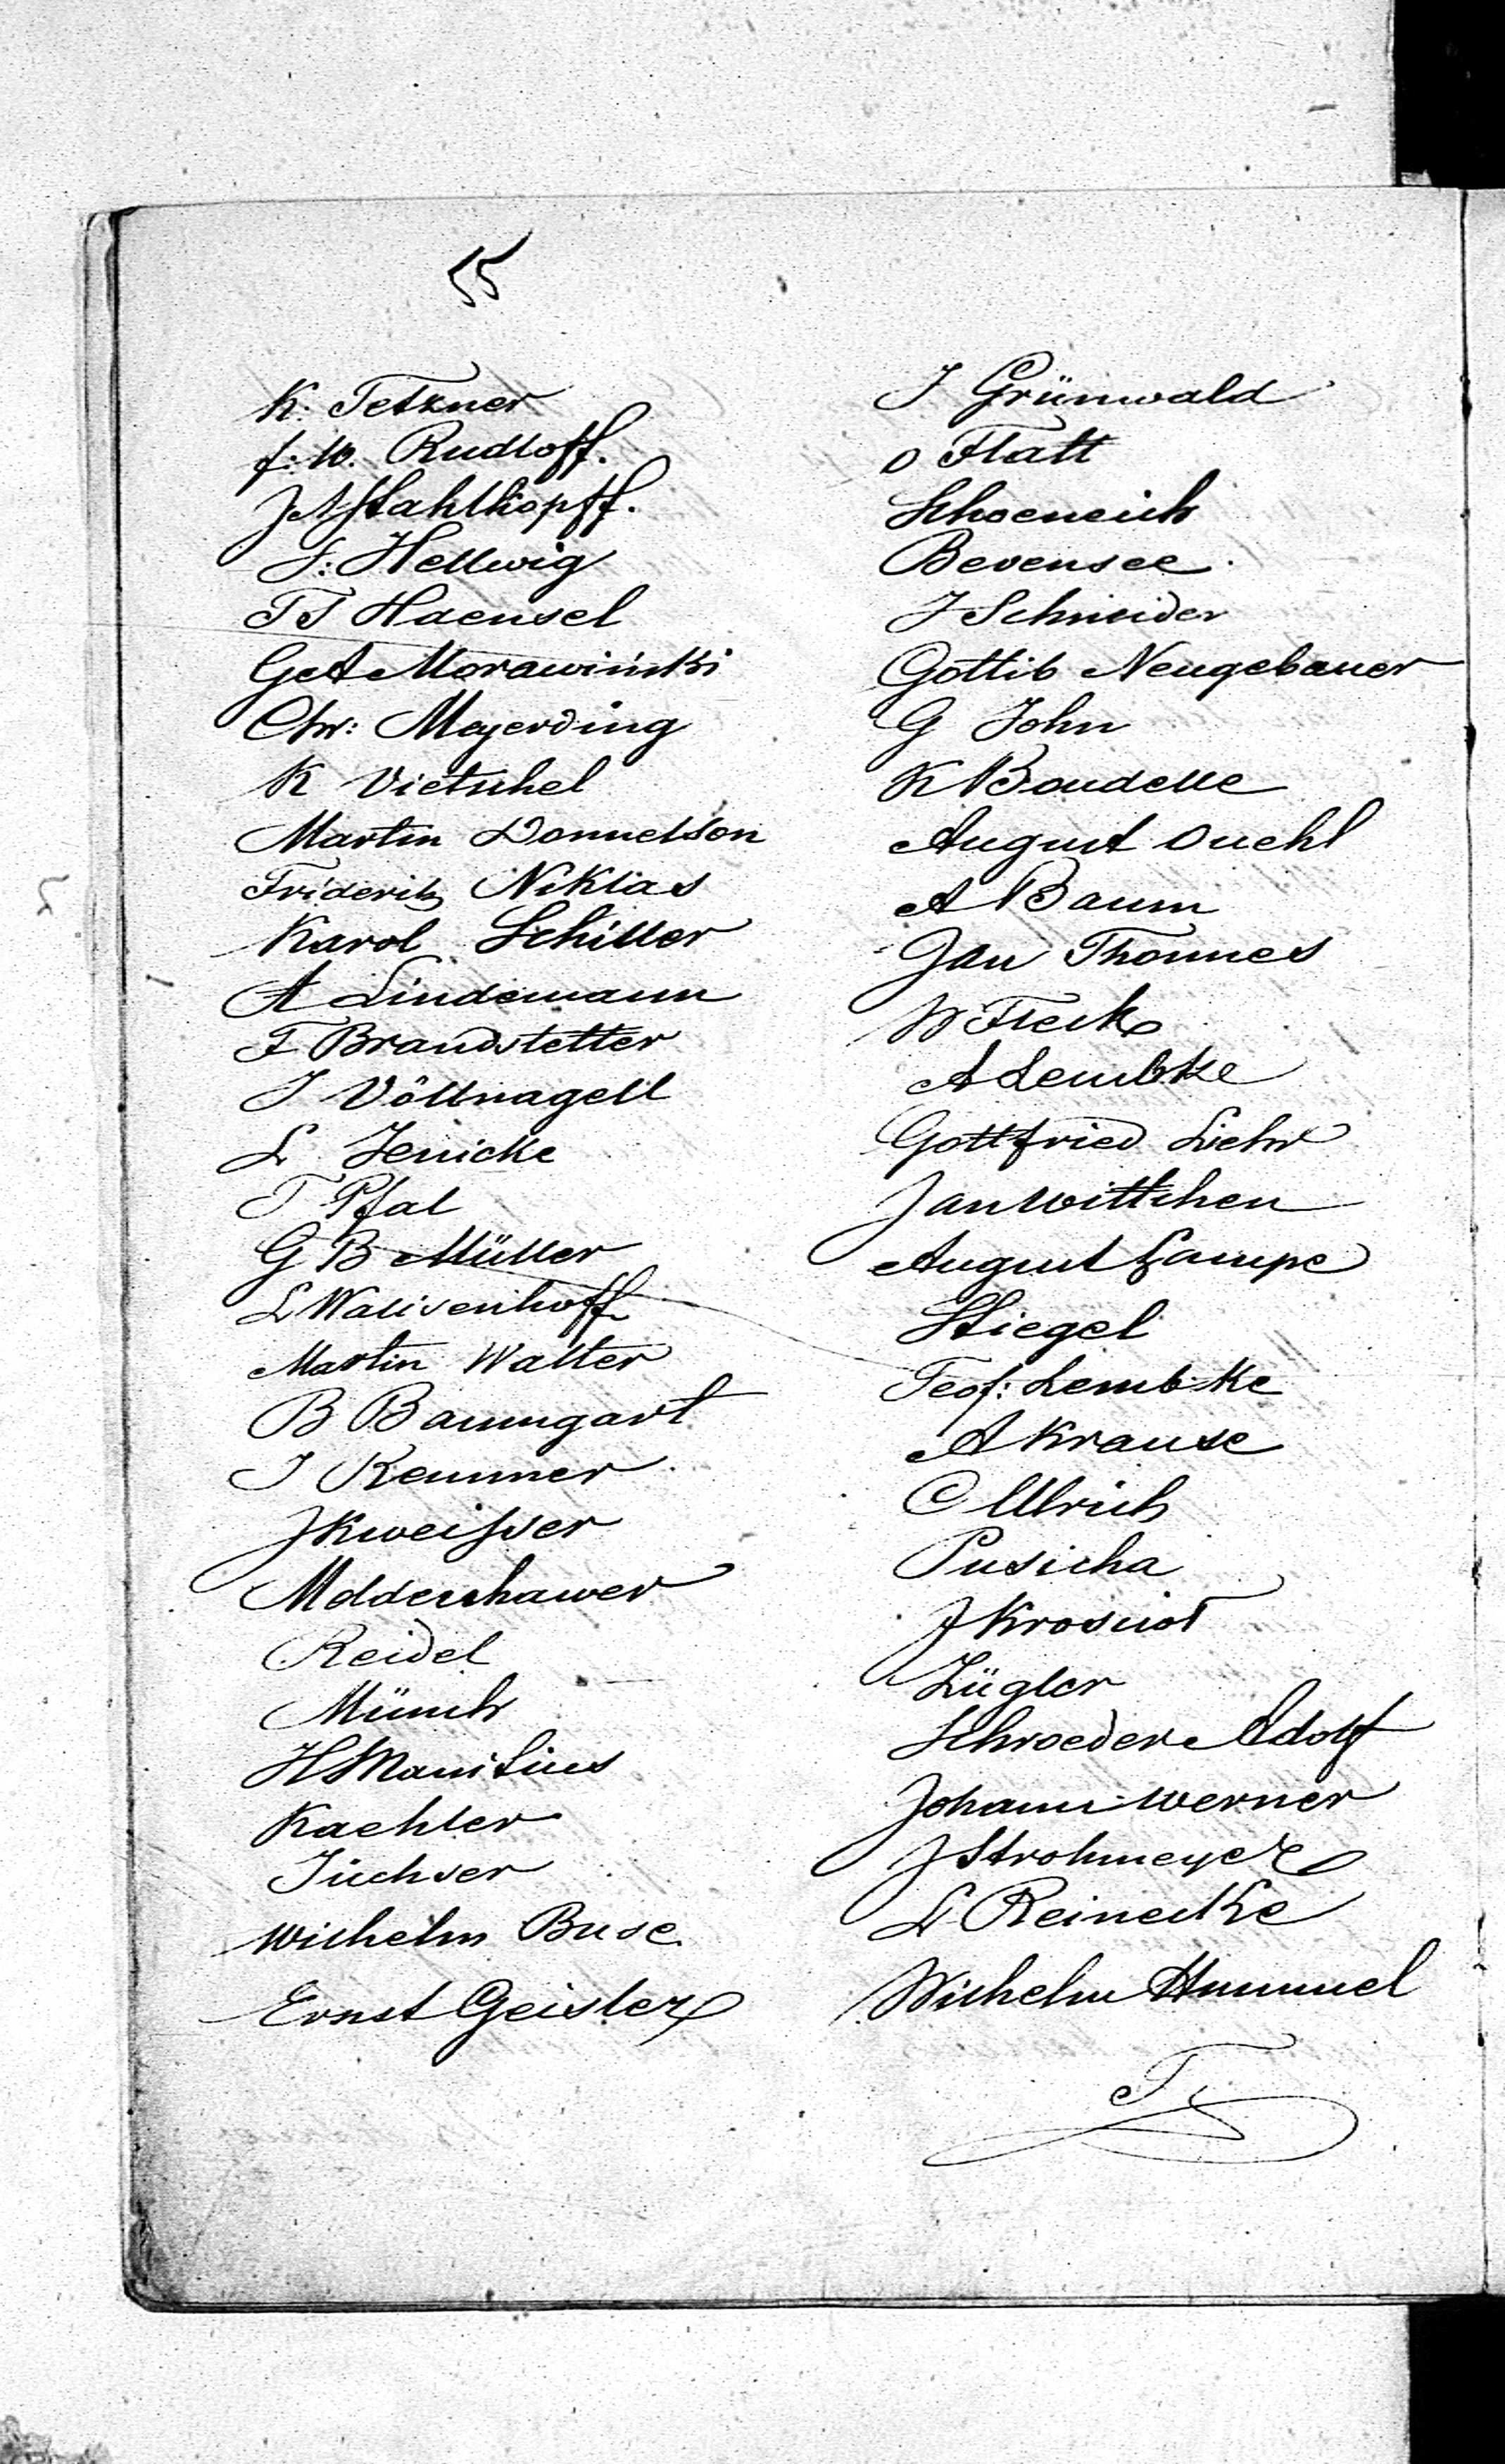 55
K. Tetzner
f: W. Rudloff.
J A Stahlkopff.
F: Hellwig
T T Haensel
G A Morawiński
Chr: Meyerding
K Vietschel
Martin Donnelson
Friderik Niklas
Karol Schiller
A Lindemann
F Brandstetter
J Vôllnagell
L Jenicke
T Pfal
G B Müller
L Walisenhoff
Martin Walter
B Baumgart
J Remmer
J Kweisser
Moldenhawer
Reidel
Münch
H Manitius
Kaehler
Tuchser
Wilhelm Buse
Ernst Geisler
J Grünwald
O Flatt
Schoeneich
Bevensee
J Schneider
Gottlib Neugebauer
G John
K Baudelle
August Duehl
A Baum
Jan Thonnes
W Fleck
A Lembke
Gottfried Liehr
Jan Wittchen
August Lampe
Stiegel
Teof: Lembke
A Krause
C Ullrich
Pusicha
J Krosnot
Zügler
Schroeder Adolf
Johann Werner
J Strohmeyer
L Reinecke
Wilhelm Hummel